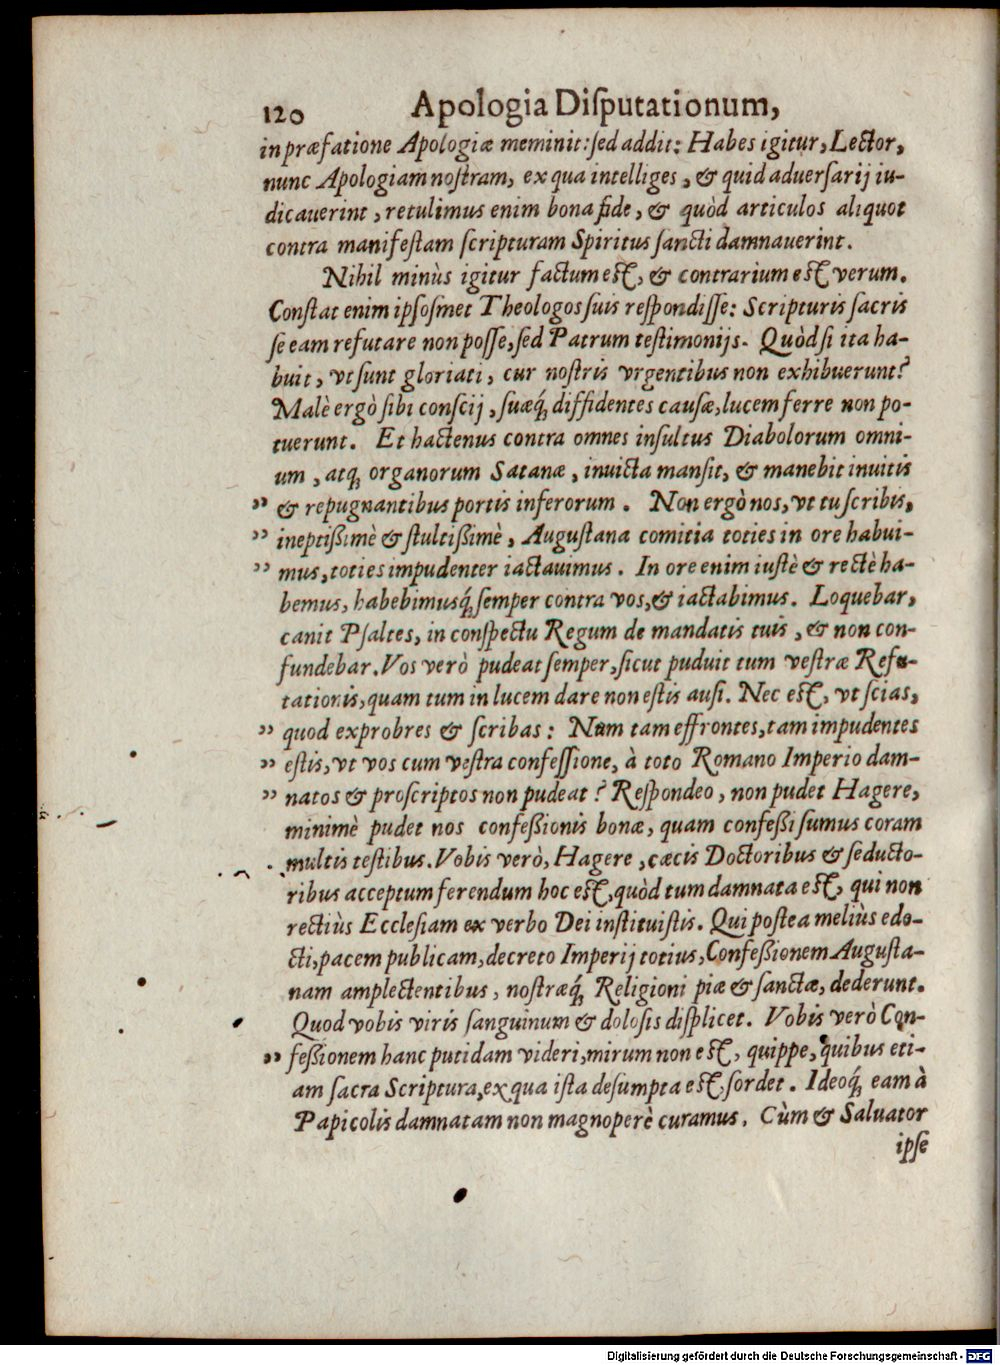 120 Apologia Diſputationum,
in præfatione Apologiæ meminit: ſed addit: Habes igitur, Lector,
nunc Apologiam noſtram, ex qua intelliges, & quid aduerſarij iu-
dicauerint, retulimus enim bona fide, & quòd articulos aliquot
contra manifeſtam ſcripturam Spiritus ſancti damnauerint.
Nihil minùs igitur factum eſt, & contrarium eſt verum.
Conſtat enim ipſoſmet Theologos ſuis reſpondiſſe: Scripturis ſacris
ſe eam refutare non poſſe, ſed Patrum teſtimonijs. Quòd ſi ita ha-
buit, vt ſunt gloriati, cur noſtris vrgentibus non exhibuerunt?
Malè ergò ſibi conſcij, ſuæq́; diffidentes cauſæ, lucem ferre non po-
tuerunt. Et hactenus contra omnes inſultus Diabolorum omni-
um, atq; organorum Satanæ, inuicta manſit, & manebit inuitis
„ & repugnantibus portis inferorum. Non ergò nos, vt tu ſcribis,
„ ineptißimè & ſtultißimè, Auguſtana comitia toties in ore habui-
„ mus, toties impudenter iactauimus. In ore enim iuſtè & rectè ha-
bemus, habebimusq́; ſemper contra vos, & iactabimus. Loquebar,
canit Pſaltes, in conſpectu Regum de mandatis tuis, & non con-
fundebar. Vos verò pudeat ſemper, ſicut puduit tum veſtræ Refu-
tationis, quam tum in lucem dare non eſtis auſi. Nec eſt, vt ſcias,
„ quod exprobres & ſcribas: Num tam effrontes, tam impudentes
„ eſtis, vt vos cum veſtra confeſſione, à toto Romano Imperio dam-
„ natos & proſcriptos non pudeat? Reſpondeo, non pudet Hagere,
minimè pudet nos confeßionis bonæ, quam confeßi ſumus coram
multis teſtibus. Vobis verò, Hagere, cæcis Doctoribus & ſeducto-
ribus acceptum ferendum hoc eſt, quòd tum damnata eſt, qui non
rectiùs Eccleſiam ex verbo Dei inſtituiſtis. Qui poſtea meliùs edo-
cti, pacem publicam, decreto Imperij totius, Confeßionem Auguſta-
nam amplectentibus, noſtræq́; Religioni piæ & ſanctæ, dederunt.
Quod vobis viris ſanguinum & doloſis diſplicet. Vobis verò Con-
„ feßionem hanc putidam videri, mirum non eſt, quippe, quibus eti-
am ſacra Scriptura, ex qua iſta deſumpta eſt, ſordet. Ideoq́; eam à
Papicolis damnatam non magnoperè curamus. Cùm & Saluator
ipſe
Digitalisierung gefördert durch die Deutsche Forschungsgemeinschaft - DFG